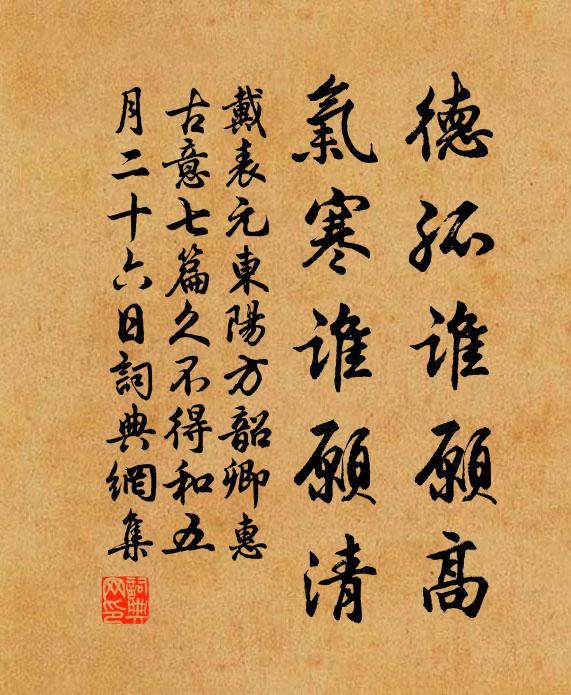 德孤誰願高
氣寒誰願清
戴表元東陽方韶卿惠
古意七篇久不得和五
月二十六日詞典網集
詞典網印